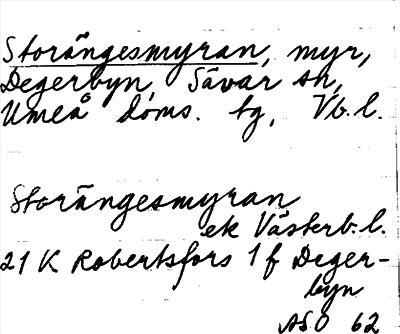 Storängesmyran, myr,
Degerbyn, Sävar sn,
Umeå doms. tg, Vb. l.
Storängesmyran
ek Västerb. l.
21 K Robertsfors 1 f Deger-
byn
ASO 62